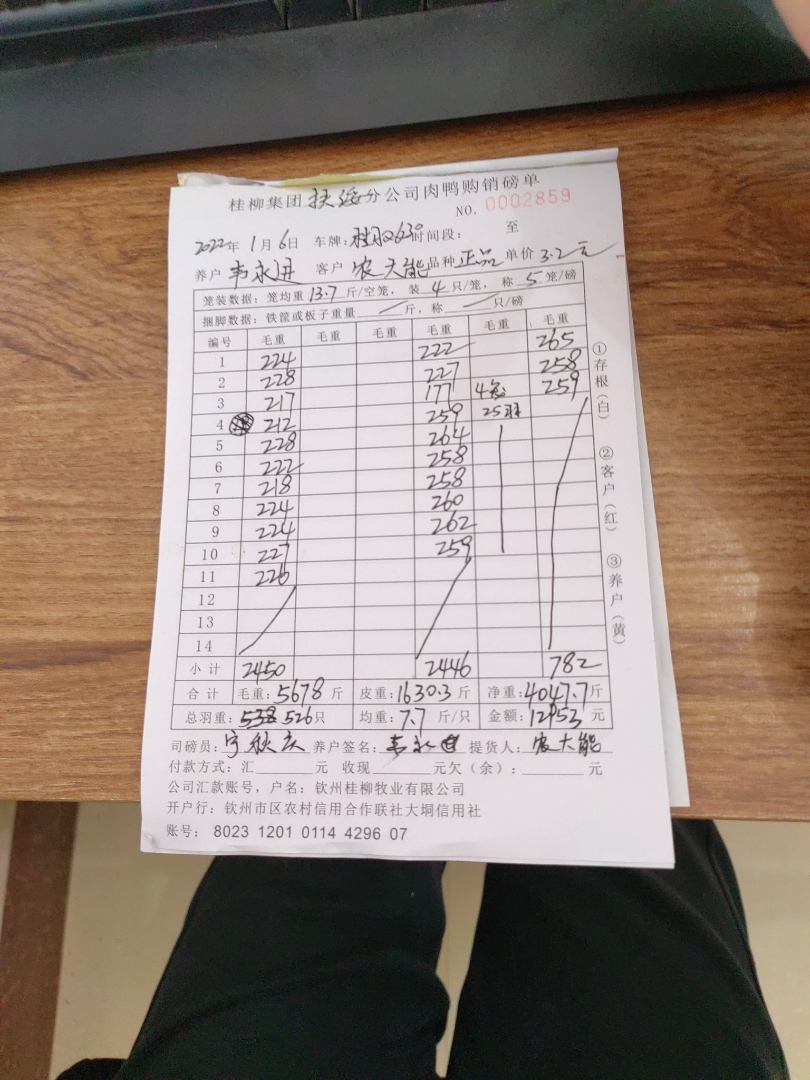 桂柳集团扶绥分公司肉鸭购销磅单
NO. 0002859
2022年1月6日 车牌: 时间段: 至
养户 韦永进 客户 农大能 品种 正品 单价 3.2元
笼装数据: 笼均重 13.7 斤/空笼, 装 4 只/笼, 称 5 笼/磅
捆脚数据: 铁筐或板子重量 斤, 称 只/磅
编号 毛重 毛重 毛重 毛重 毛重 毛重
1 224 222 265
2 228 227 258
3 217 177 4笼 259
4 212 259 25羽
5 228 264
6 222 258
7 218 258
8 224 260
9 224 262
10 227 259
11 226
12
13
14
小计 2450 2446 782
合计 毛重: 5678 斤 皮重: 1630.3 斤 净重: 4047.7 斤
总羽重: 538 526 只 均重: 7.7 斤/只 金额: 12953 元
司磅员: 宁秋兴 养户签名: 韦永进 提货人: 农大能
付款方式: 汇 元 收现 元欠(余): 元
公司汇款账号, 户名: 钦州桂柳牧业有限公司
开户行: 钦州市区农村信用合作联社大垌信用社
账号: 8023 1201 0114 4296 07
①存根(白)
②客户(红)
③养户(黄)